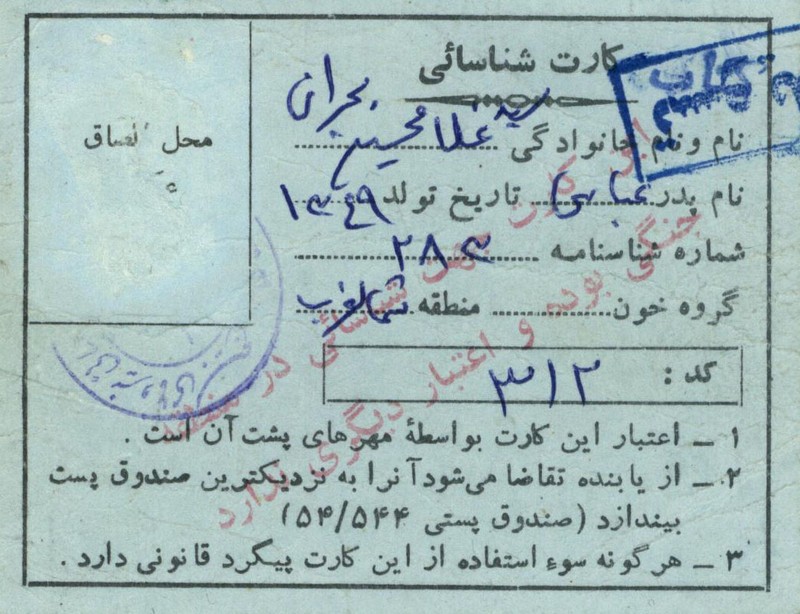 کارت شناسائی
نام و نام خانوادگی سید غلامحسین بحرانی
نام پدر عباس تاریخ تولد ۱۳۴۹
شماره شناسنامه ۲۸۳
گروه خون منطقه شمالغرب
کد : ۳۱۲
محل الصاق
۱ ــ اعتبار این کارت بواسطهٔ مهرهای پشت آن است .
۲ ــ از یابنده تقاضا می‌شود آنرا به نزدیکترین صندوق پست
بیندازد (صندوق پستی ۵۴/۵۴۴)
۳ ــ هرگونه سوء استفاده از این کارت پیگرد قانونی دارد .
این کارت جهت شناسائی در منطقه
جنگی بوده و اعتبار دیگری ندارد